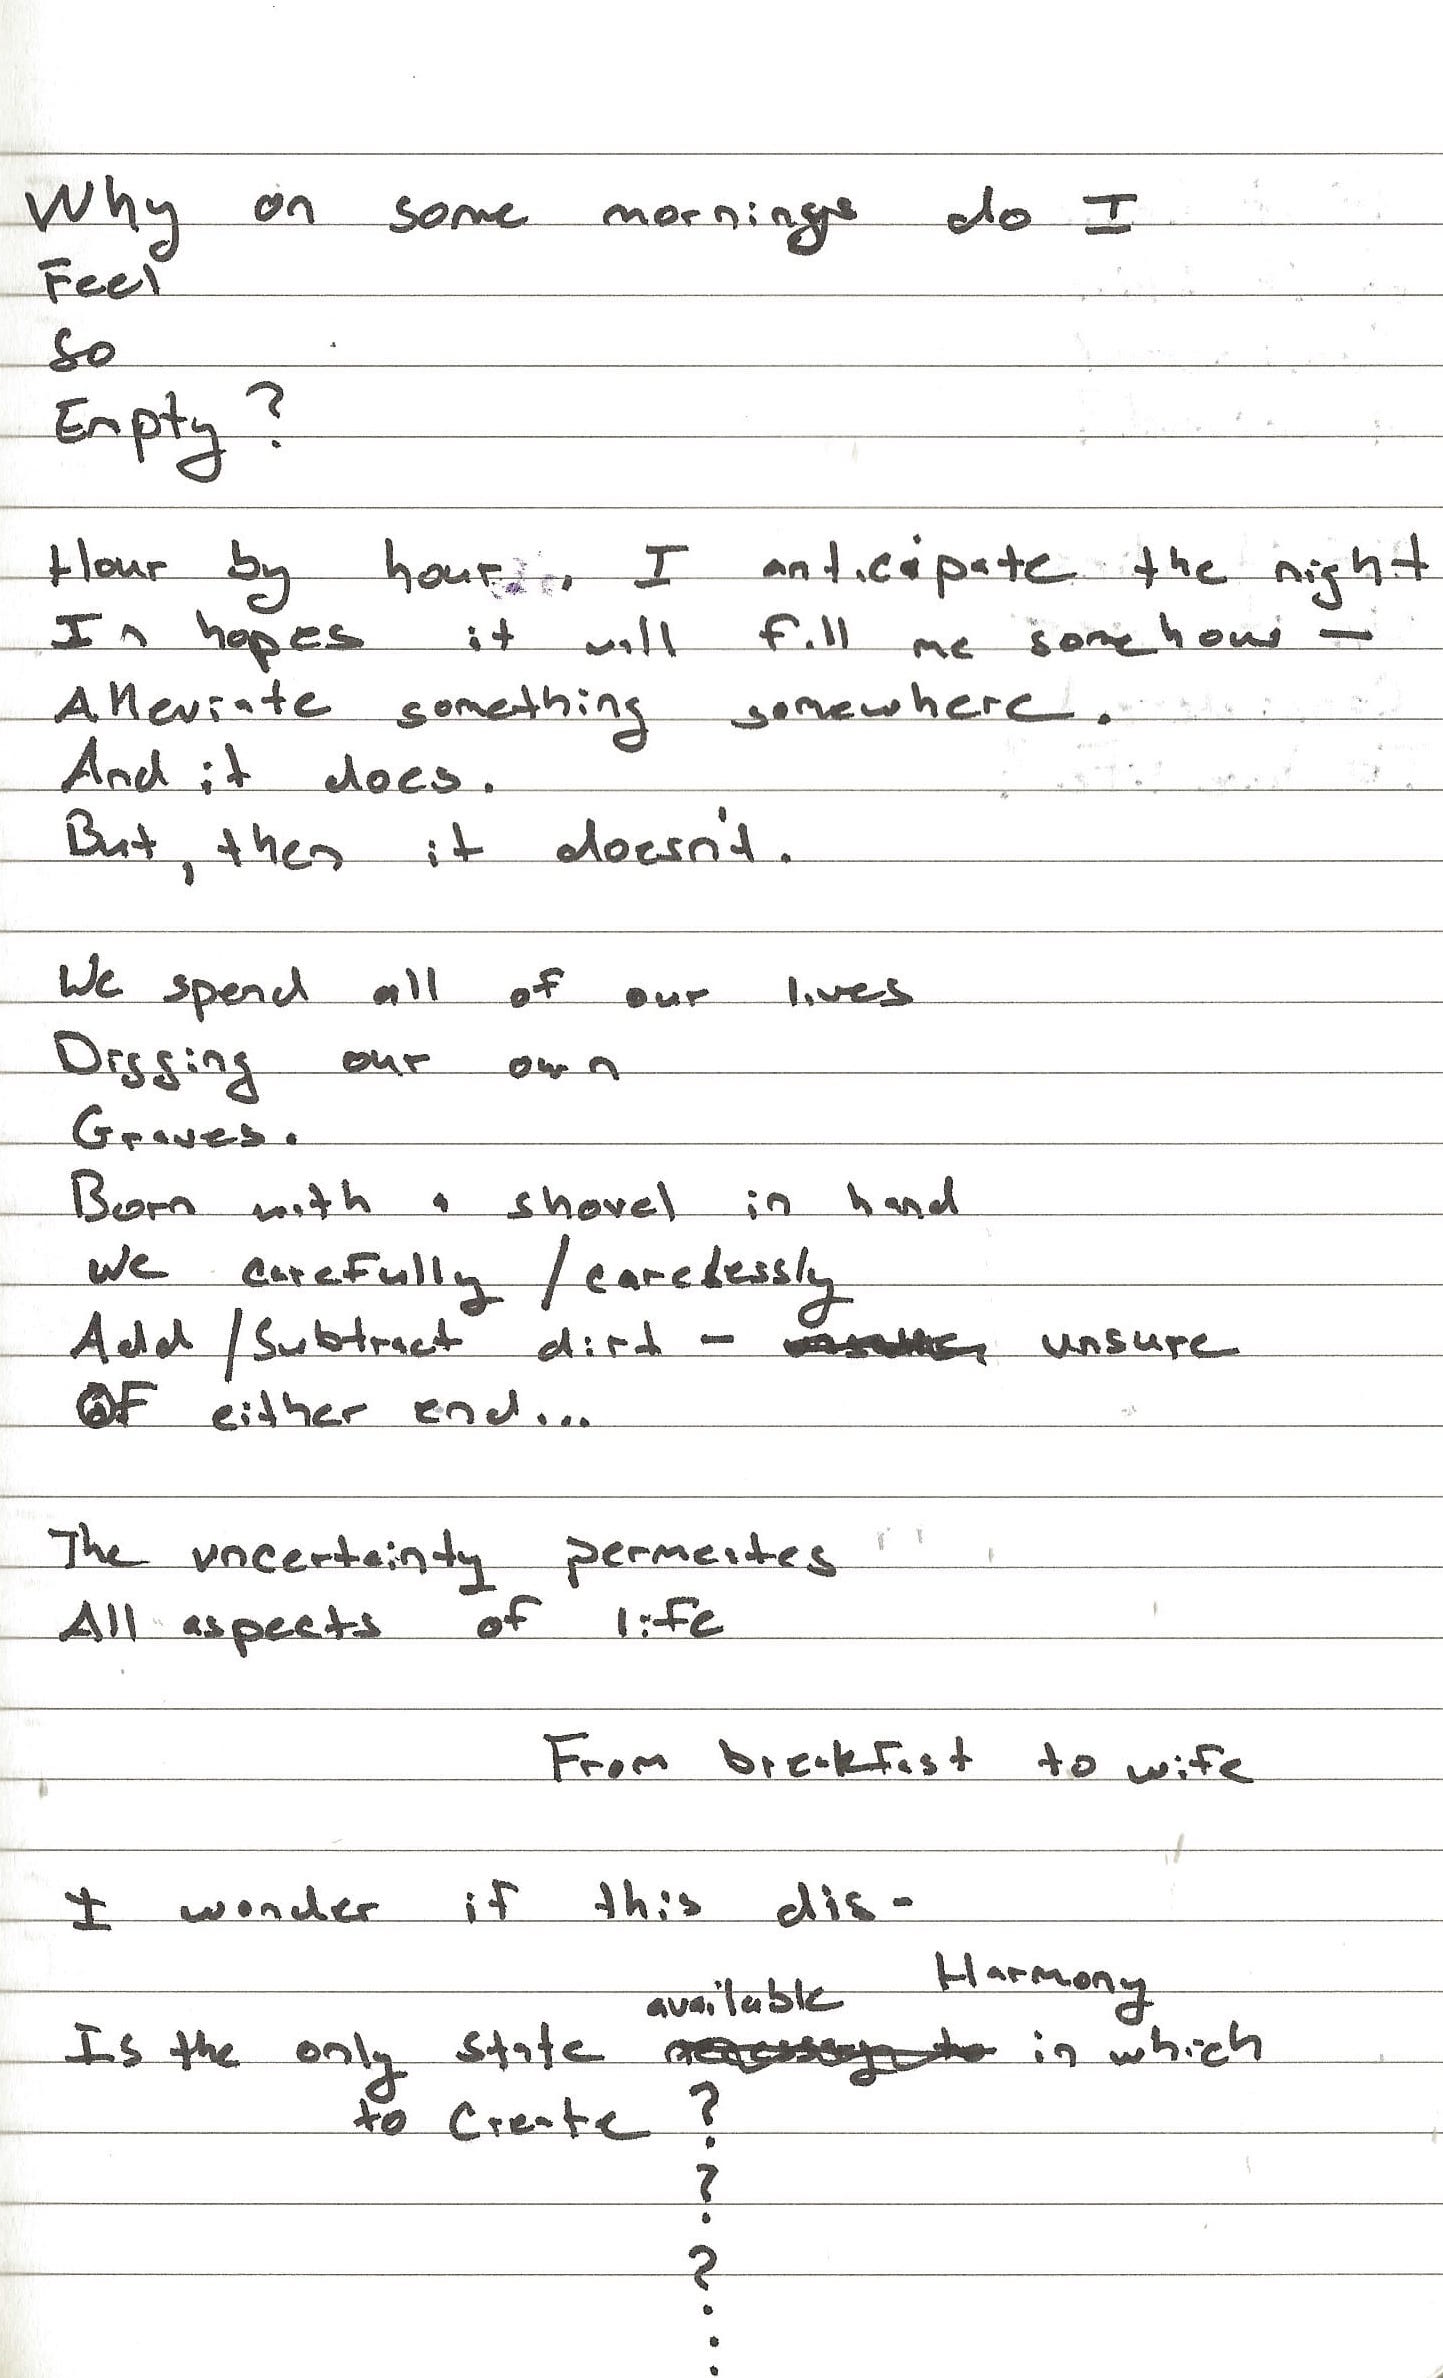 Why on some mornings do I
Feel
So
Empty?
Hour by hour, I anticipate the night
In hopes it will fill me somehow —
Alleviate something somewhere.
And it does.
But, then it doesn't.
We spend all of our lives
Digging our own
Graves.
Born with a shovel in hand
We carefully / carelessly
Add / Subtract dirt - unsure
Of either end...
The uncertainty permeates
All aspects of life
From breakfast to wife
I wonder if this dis-
Harmony
available
Is the only state in which
to Create ?
?
?
.
.
.